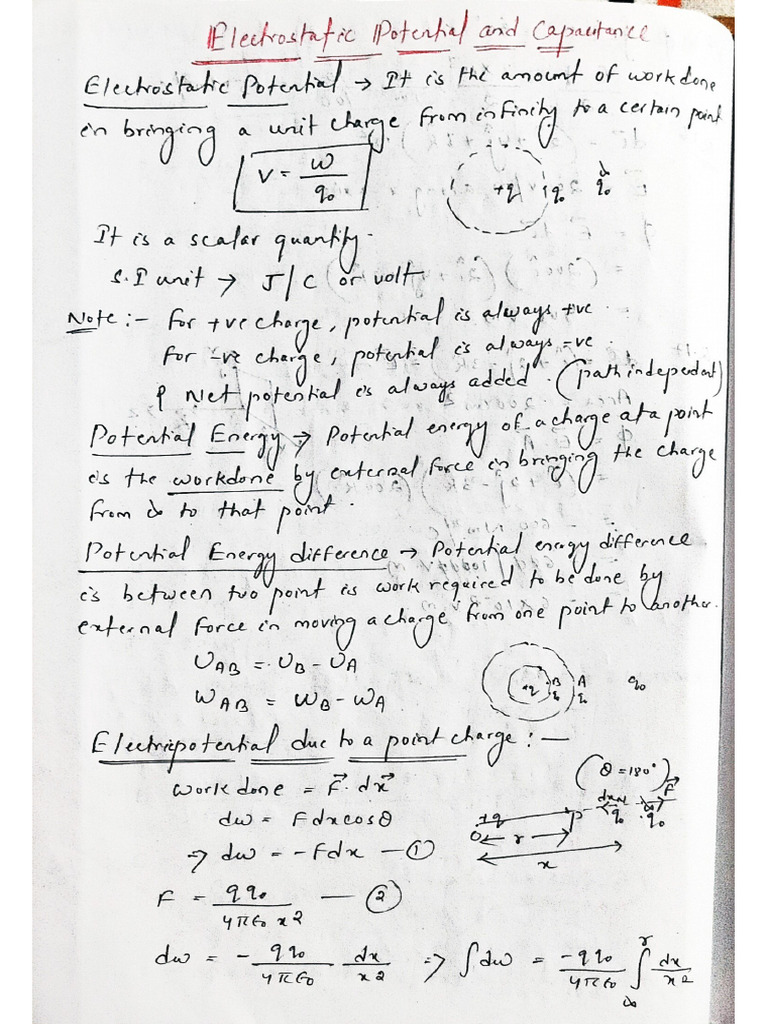 Electrostatic Potential and Capacitance.
Electrostatic Potential → It is the amount of workdone
in bringing a unit charge from infinity to a certain point
V = W/q₀
+q q₀ ∞ q₀
It is a scalar quantity.
S.I unit → J/C or volt
Note :- For +ve charge, potential is always +ve.
For -ve charge, potential is always -ve.
& Net potential is always added. (path independent)
Potential Energy → Potential energy of a charge at a point
is the workdone by external force in bringing the charge
from ∞ to that point.
Potential Energy difference → Potential energy difference
is between two point is work required to be done by
external force in moving a charge from one point to another.
U_AB = U_B - U_A
W_AB = W_B - W_A
+q B q₀ A q₀ q₀
Electric potential due to a point charge : —
(θ = 180°)
Work done = F⃗ . dx⃗
dw = Fdx cosθ
⇒ dw = -Fdx — ①
+q O r P x dx q₀ ∞ q₀ F⃗
F = qq₀/4πε₀x² — ②
dw = - qq₀/4πε₀ dx/x² ⇒ ∫dw = -qq₀/4πε₀ ∫_∞^r dx/x²